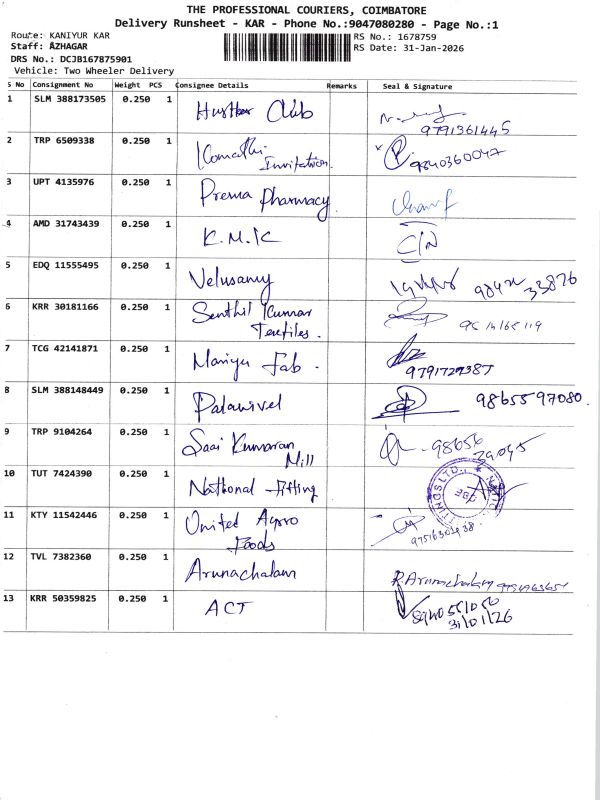 THE PROFESSIONAL COURIERS, COIMBATORE
Delivery Runsheet - KAR - Phone No.:9047080280 - Page No.:1
Route: KANIYUR KAR
RS No.: 1678759
Staff: AZHAGAR
RS Date: 31-Jan-2026
DRS No.: DCJB167875901
Vehicle: Two Wheeler Delivery
S No Consignment No Weight PCS Consignee Details Remarks Seal & Signature
1 SLM 388173505 0.250 1 Club
9791361445
2 TRP 6509338 0.250 1 Komathi
Invitation
9840360047
3 UPT 4135976 0.250 1 Prema Pharmacy
4 AMD 31743439 0.250 1 K.M.K
5 EDQ 11555495 0.250 1 Velusamy
6 KRR 30181166 0.250 1 Senthil Kumar
Textiles.
7 TCG 42141871 0.250 1 Mariya Fab.
8 SLM 388148449 0.250 1 Palanivel 9865597080.
9 TRP 9104264 0.250 1 Saai Kumaran
Mill
98656
10 TUT 7424390 0.250 1 National Fitting
11 KTY 11542446 0.250 1 United Agro
Foods
12 TVL 7382360 0.250 1 Arunachalam
R.Arunachalam
13 KRR 50359825 0.250 1 ACT
31/01/26